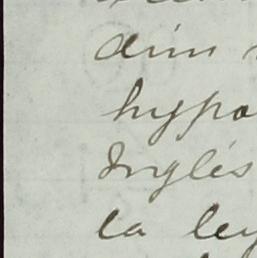 dim
hypo
Inglés
la ley